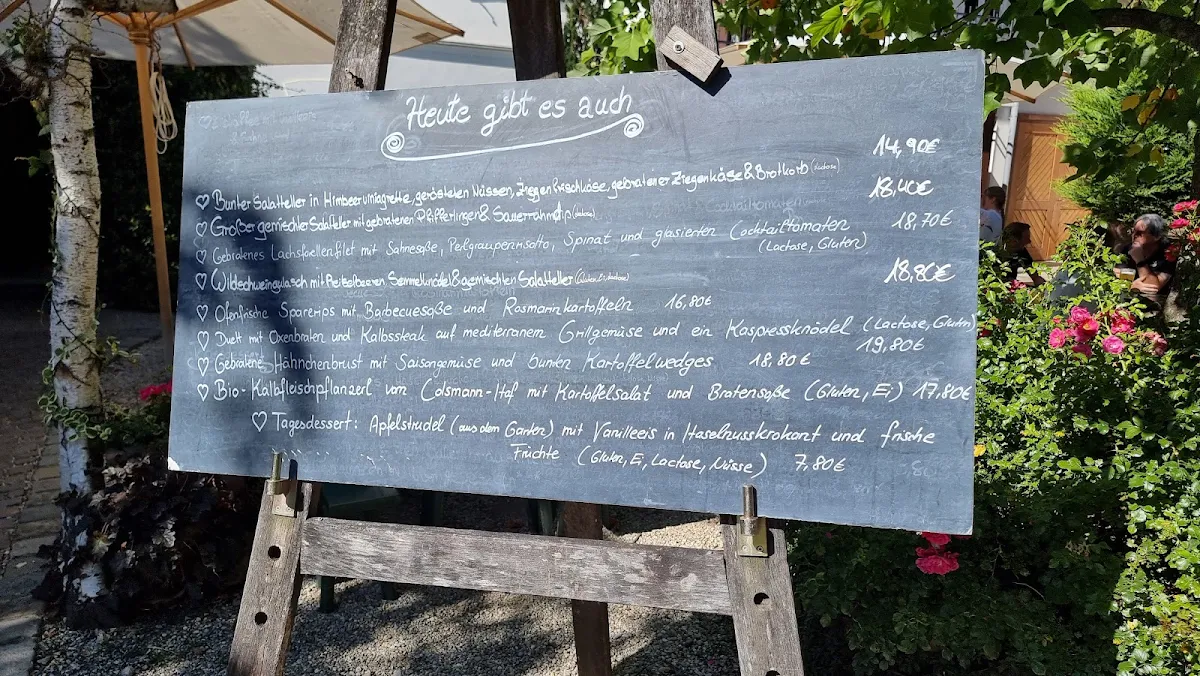 Heute gibt es auch
14,90€
♡ Bunter Salatteller in Himbeervinaigrette, gerösteten Nüssen, Ziegenfrischkäse, gebratener Ziegenkäse & Brotkorb (Lactose)
18,40€
♡ Großer gemischter Salatteller mit gebratenen Pfifferlingen & Sauerrahmdip (Lactose)
♡ Gebratenes Lachsforellenfilet mit Sahnesoße, Perlgraupenrisotto, Spinat und glasierten Cocktailtomaten 18,70€
(Lactose, Gluten)
♡ Wildschweingulasch mit Preiselbeeren Semmelknödel & gemischten Salatteller 18,80€
♡ Ofenfrische Spareribs mit Barbecuesoße und Rosmarinkartoffeln 16,80€
♡ Duett mit Oxenbraten und Kalbssteak auf mediterranem Grillgemüse und ein Kaspressknödel (Lactose, Gluten)
19,80€
♡ Gebratene Hähnchenbrust mit Saisongemüse und bunten Kartoffelwedges 18,80€
♡ Bio-Kalbfleischpflanzerl vom Colsmann-Hof mit Kartoffelsalat und Bratensoße (Gluten, Ei) 17,80€
♡ Tagesdessert: Apfelstrudel (aus dem Garten) mit Vanilleeis in Haselnusskrokant und frische
Früchte (Gluten, Ei, Lactose, Nüsse) 7,80€